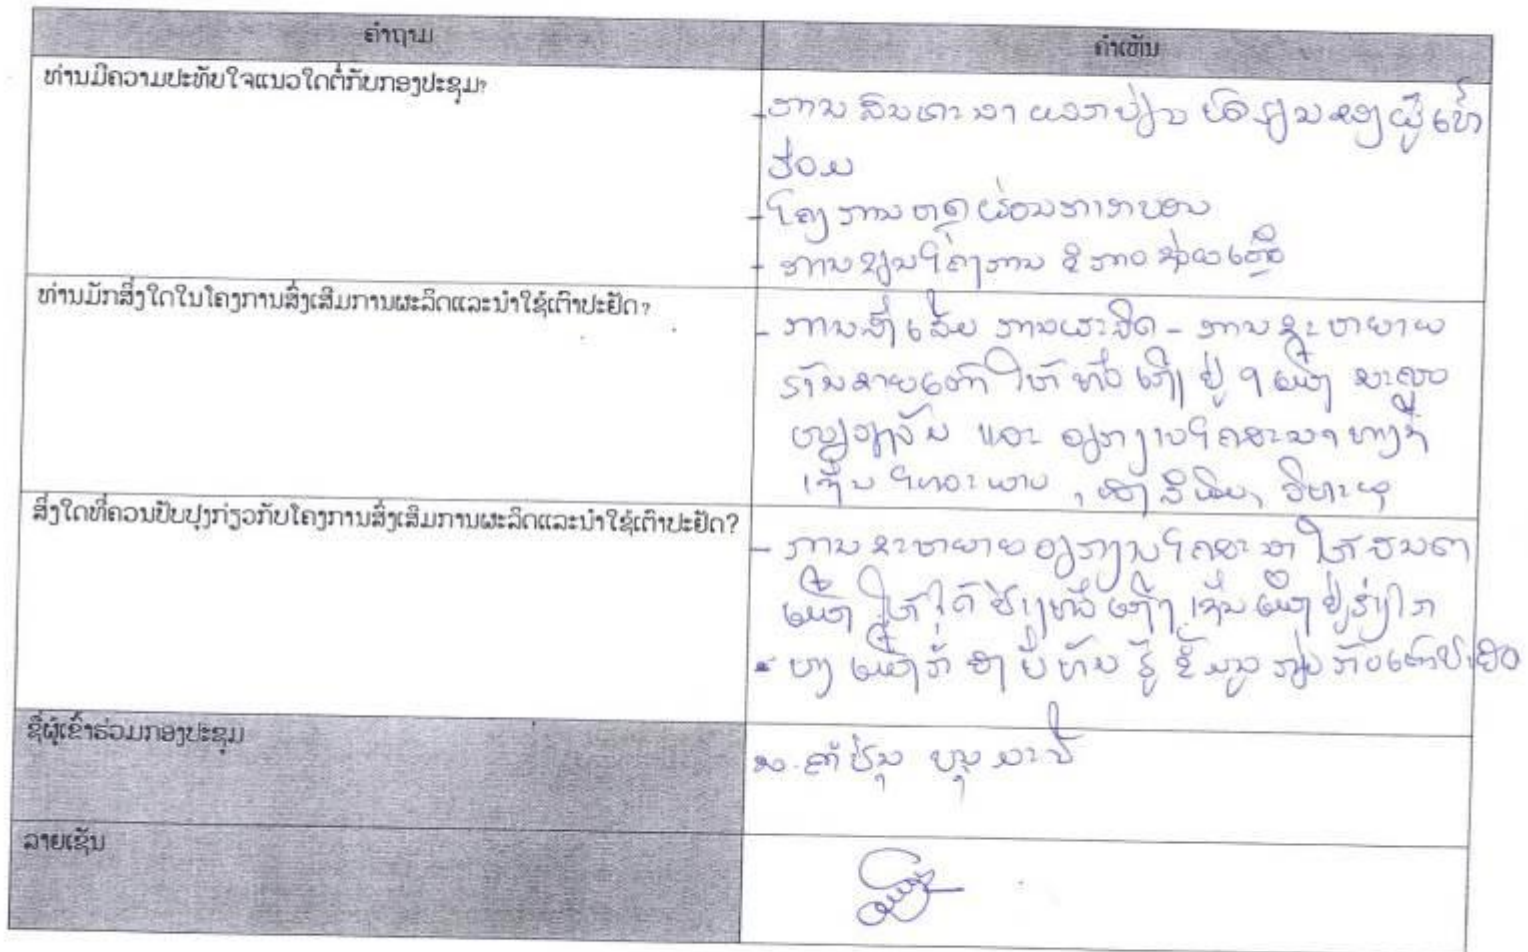 ຄຳຖາມ
ຄຳເຫັນ
ທ່ານມີຄວາມປະທັບໃຈແນວໃດຕໍ່ກັບກອງປະຊຸມ?
- ການ ສົນທະນາ ແລກປ່ຽນ ບົດຮຽນຂອງຜູ້ເຂົ້າ
ຮ່ວມ
- ໂຄງການຫຼຸດຜ່ອນກາກບອນ
- ການຂຽນໂຄງການ ຂໍການຊ່ວຍເຫຼືອ
ທ່ານມັກສິ່ງໃດໃນໂຄງການສົ່ງເສີມການຜະລິດແລະນຳໃຊ້ເຕົາປະຢັດ?
- ການສົ່ງເສີມ ການຜະລິດ - ການຂະຫຍາຍ
ຮ້ານຂາຍເຕົາ ໃຫ້ທົ່ວເຖິງ ຢູ່ ແຫຼ່ງ ນະຄອນ
ຫຼວງວຽງຈັນ ແລະ ວຽກງານໂຄສະນາ
ເຊັ່ນ ໂທລະພາບ, ໜັງສືພິມ, ວິທະຍຸ
ສິ່ງໃດທີ່ຄວນປັບປຸງກ່ຽວກັບໂຄງການສົ່ງເສີມການຜະລິດແລະນຳໃຊ້ເຕົາປະຢັດ?
- ການຂະຫຍາຍວຽກງານໂຄສະນາ ໃຫ້
ໃຫ້ໄດ້ ທົ່ວເຖິງ ເຊັ່ນ ຢູ່ຫ່າງໄກ
- ບາງ ກໍ່ຍັງບໍ່ທັນຮູ້ຂໍ້ມູນກ່ຽວກັບເຕົາປະຢັດ
ຊື່ຜູ້ເຂົ້າຮ່ວມກອງປະຊຸມ
ລາຍເຊັນ